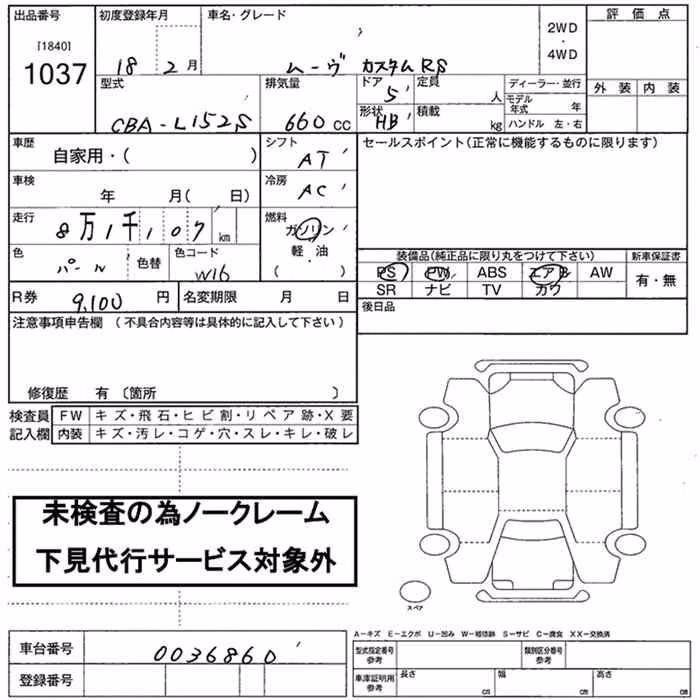 出品番号 初度登録年月 車名・グレード 評価点
[1840]
1037
18 2月 ムーヴ カスタムRS 2WD・4WD
型式 排気量 ドア 定員 ディーラー・並行 外装 内装
5 人 モデル年式 年
CBA-L152S 660cc 形状 積載 ハンドル 左・右
HB kg
車歴 シフト セールスポイント(正常に機能するものに限ります)
自家用・( ) AT
車検 冷房
年 月(日) AC
走行 燃料
8万1千107km ガソリン・軽油
( )
色 色替 色コード
パール W16
装備品(純正品に限り丸をつけて下さい) 新車保証書
PS PW ABS エアB AW 有・無
SR ナビ TV カワ
R券 9,100円 名変期限 月 日 後日品
注意事項申告欄(不具合内容等は具体的に記入して下さい)
修復歴 有〔箇所 〕
検査員 FW キズ・飛石・ヒビ割・リペア跡・X要
記入欄 内装 キズ・汚レ・コゲ・穴・スレ・キレ・破レ
未検査の為ノークレーム
下見代行サービス対象外
スペア
A−キズ E−エクボ U−凹み W−補修跡 S−サビ C−腐食 XX−交換済
車台番号 0036860 型式指定番号 参考 類別区分番号 参考
登録番号 車庫証明用 参考 長さ cm 幅 cm 高さ cm